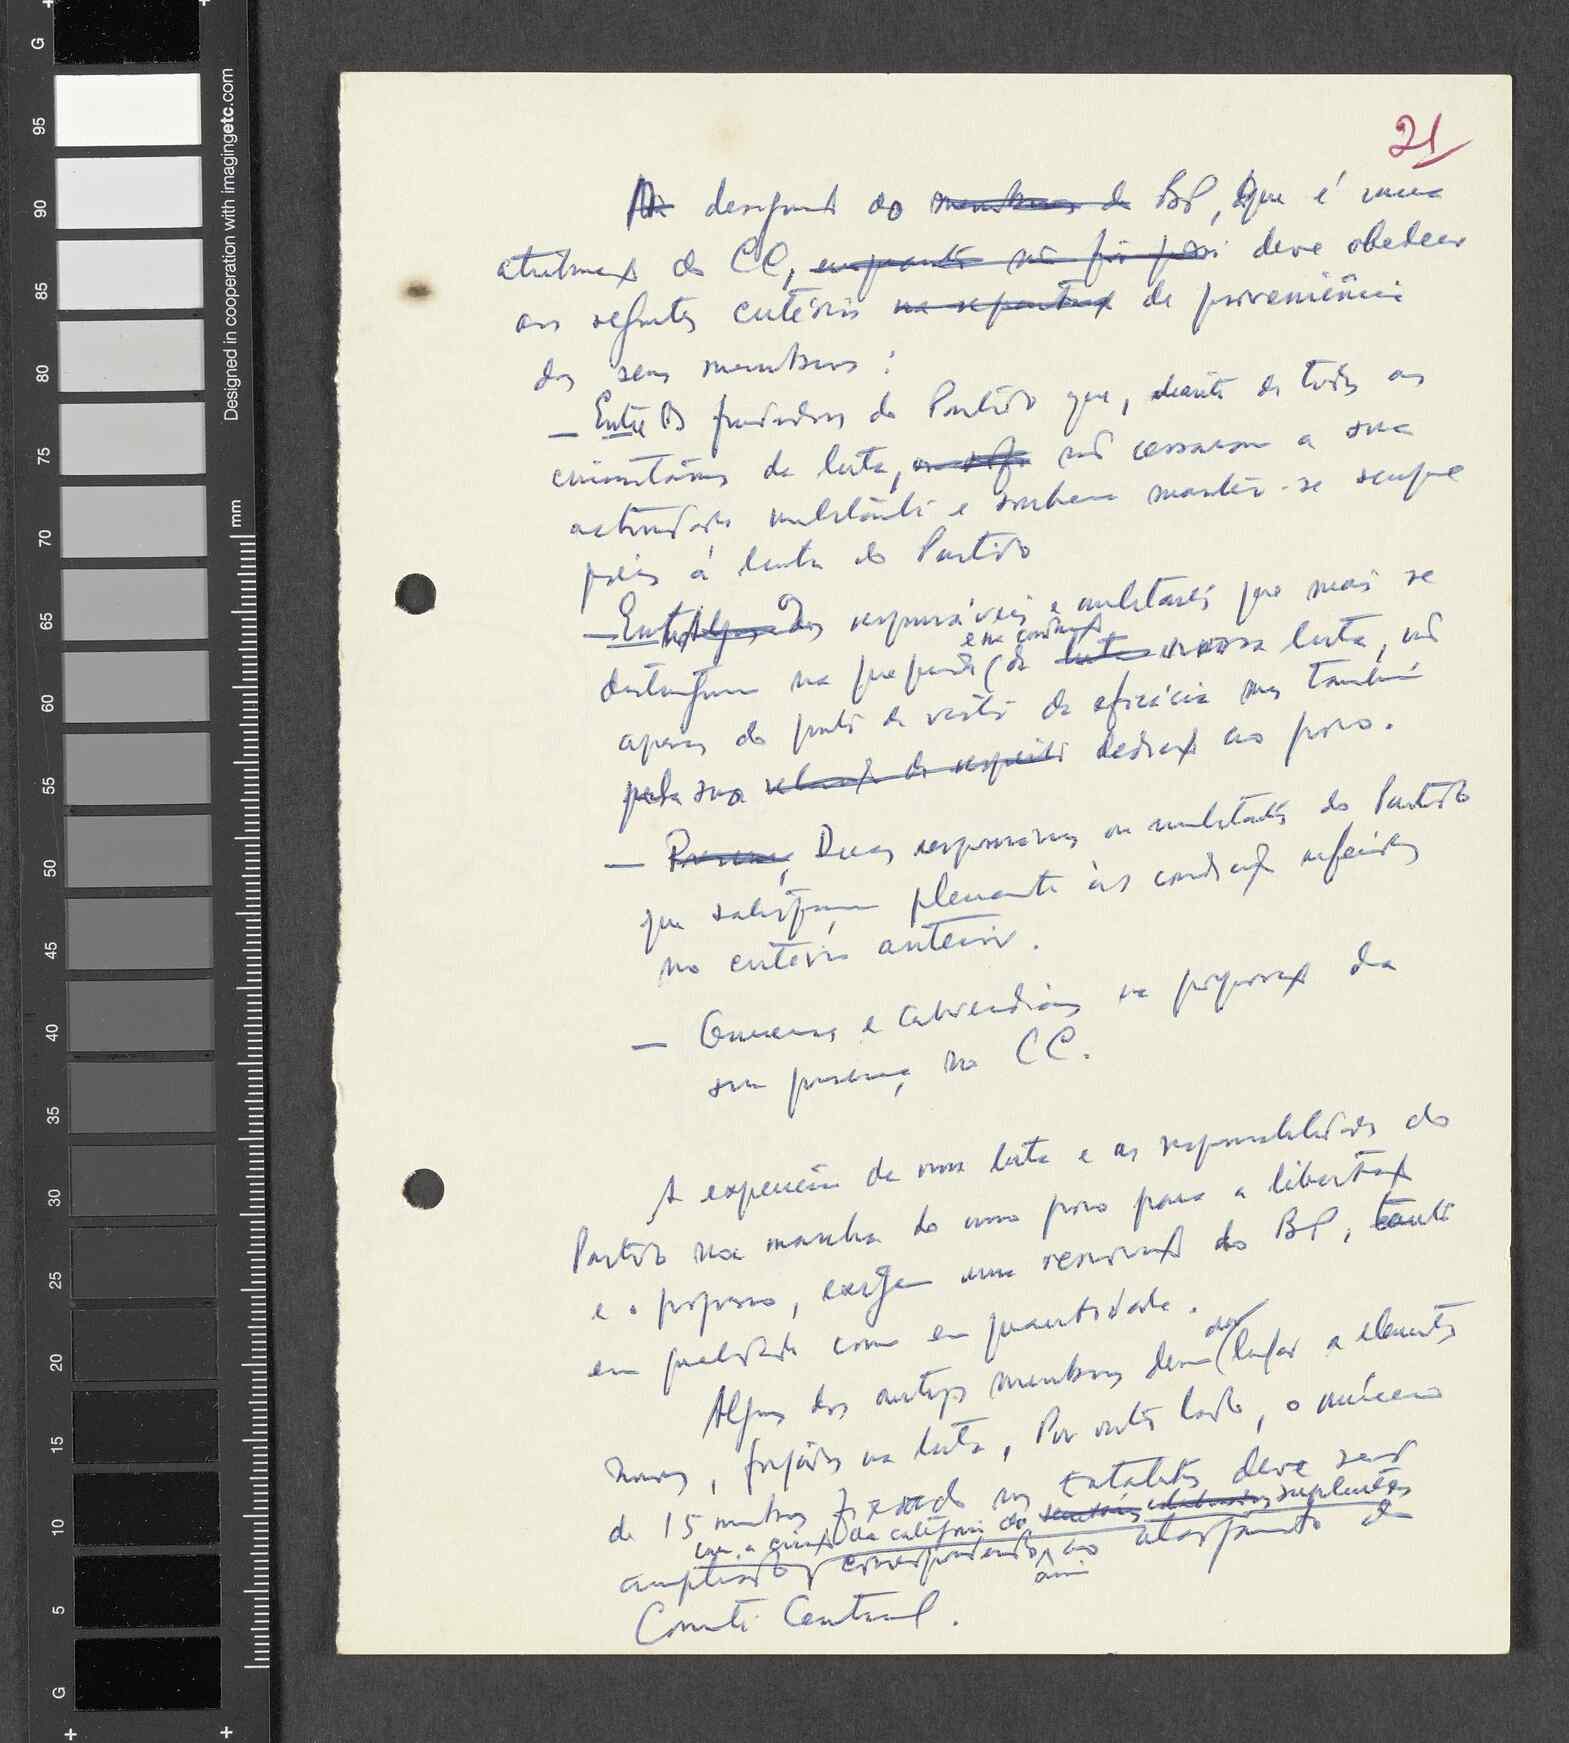 21
A designação do membros do BP, que é uma
atribuição do CC, enquanto não for deve obedecer
aos seguintes critérios na repartição de proveniência
dos seus membros:
— Entre Os fundadores do Partido que, durante todas as
circunstâncias da luta, não cessaram a sua
actividade militante e souberam manter-se sempre
fiéis à luta do Partido
— Entre Alguns dos responsáveis e militantes que mais se
e na condução
distinguiram na preparação da luta nossa luta, não
apenas do ponto de vista da eficácia mas também
pela sua dedicação ao povo.
— Presença, Duas responsáveis ou militantes do Partido
que satisfaçam plenamente às condições referidas
no critério anterior.
— Guineenses e Caboverdianos na proporção da
sua presença no CC.
A experiência da nossa luta e as responsabilidades do
Partido na marcha do nosso povo para a libertação
e o progresso, exigem uma renovação do BP, tanto
em qualidade como em quantidade.
dar
Alguns dos antigos membros devem lugar a elementos
novos, forjados na luta. Por outro lado, o número
de 15 membros fixado nos estatutos deve ser
com a criação da categoria de secretários colaboradores suplentes
ampliado, correspondendo ao alargamento do
assim
Comité Central.
Designed in cooperation with imagingetc.com
mm
G
95
90
85
80
75
70
65
60
55
50
45
40
35
30
25
20
15
10
5
G